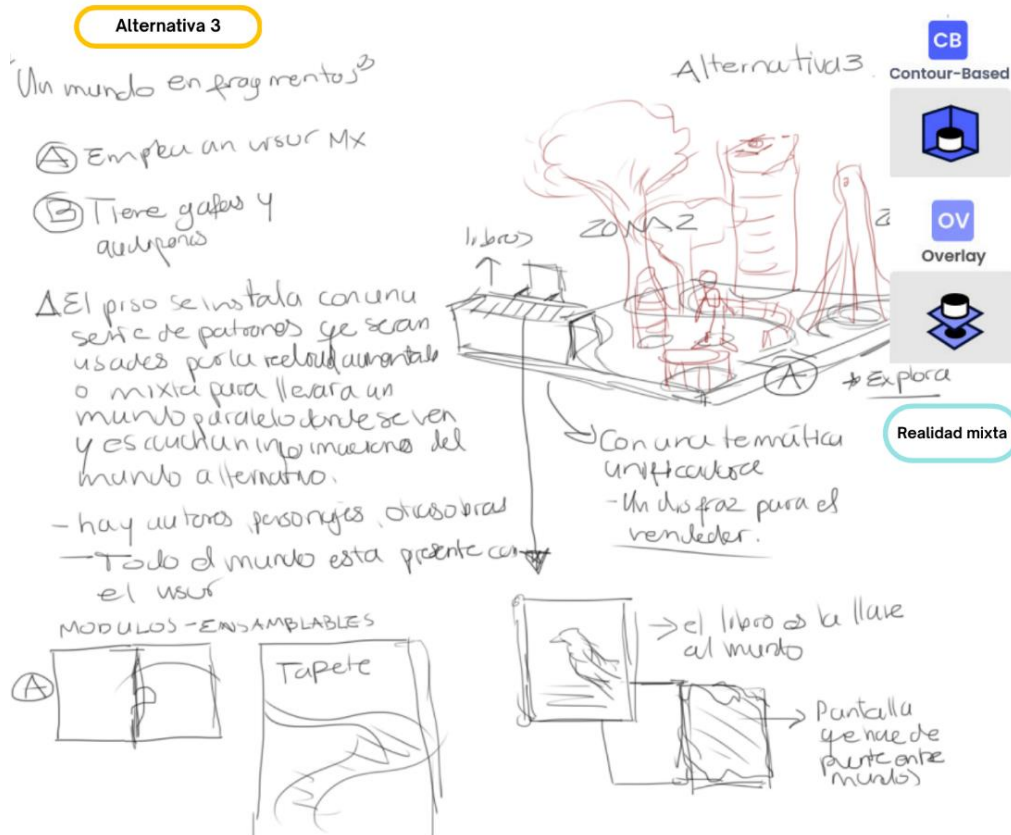 Alternativa 3
"Un mundo en fragmentos"
A Emplea un visor Mx
B Tiene gafas y
audífonos
El piso se instala con una
serie de patrones que seran
usados por la realidad aumentada
o mixta para llevar a un
mundo paralelo donde se ven
y escuchan informaciones del
mundo alternativo.
- hay autores, personajes, otras obras
- Todo el mundo esta presente con
el visor
MODULOS - ENSAMBLABLES
A
Tapete
Alternativa 3.
libros
ZONA 2
Z
A
Explora
Con una temática
unificadora
- Un disfraz para el
vendedor.
el libro es la llave
al mundo
Pantalla
que hace de
puente entre
mundos
CB
Contour-Based
OV
Overlay
Realidad mixta